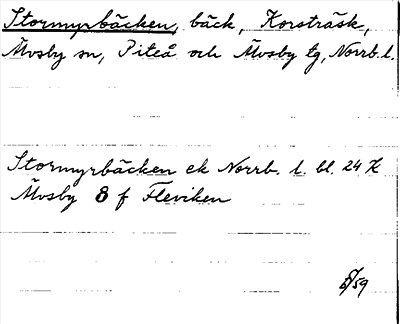 Stormyrbäcken, bäck, Korsträsk,
Älvsby sn, Piteå och Älvsby tg, Norrb. l.
Stormyrbäcken ek Norrb. l. bl. 24 K
Älvsby 8 f Fleviken
/59